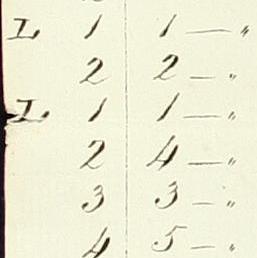 L 1 1 — "
2 2 — "
L 1 1 — "
2 4 — "
3 3 — "
4 5 — "